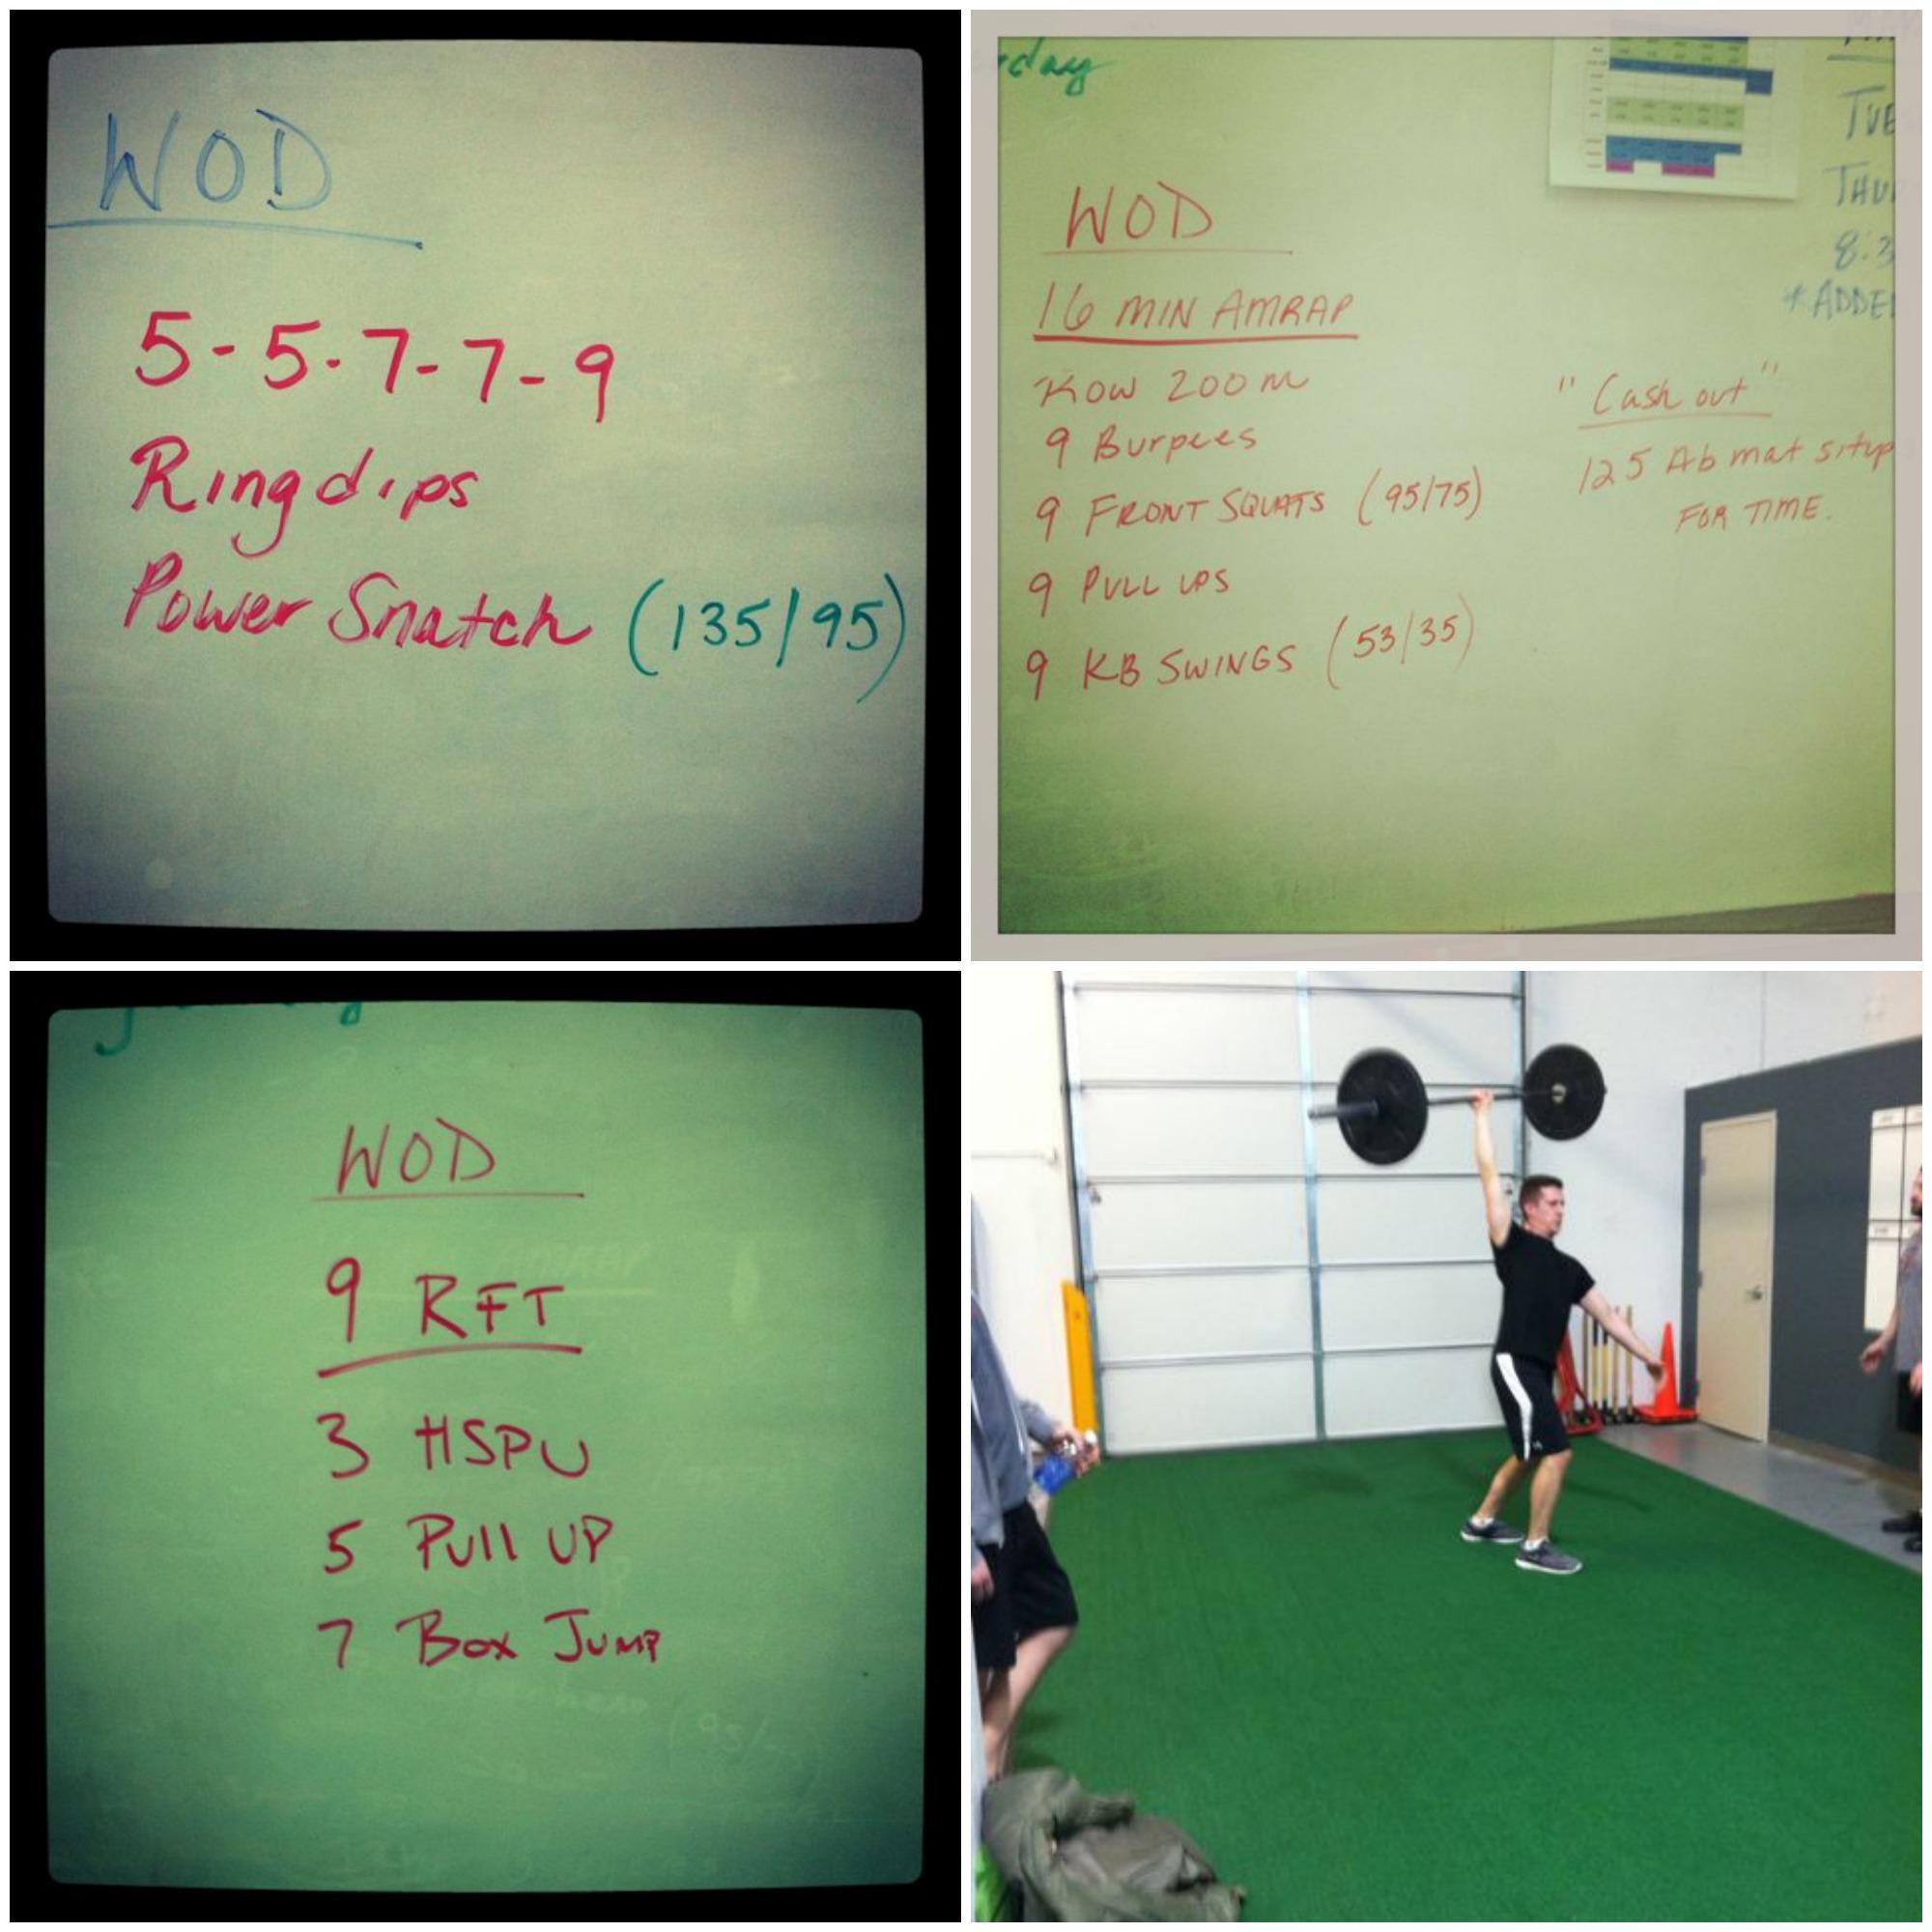 WOD
5-5-7-7-9
Ring dips
Power Snatch (135/95)
rday
WOD
16 MIN AMRAP
Row 200m
9 Burpees
9 FRONT SQUATS (95/75)
9 PULL UPS
9 KB SWINGS (53/35)
"Cash out"
125 Ab mat situp
FOR TIME.
TUE
THUR
8:3
*ADDED
WOD
9 RFT
3 HSPU
5 Pull UP
7 Box Jump